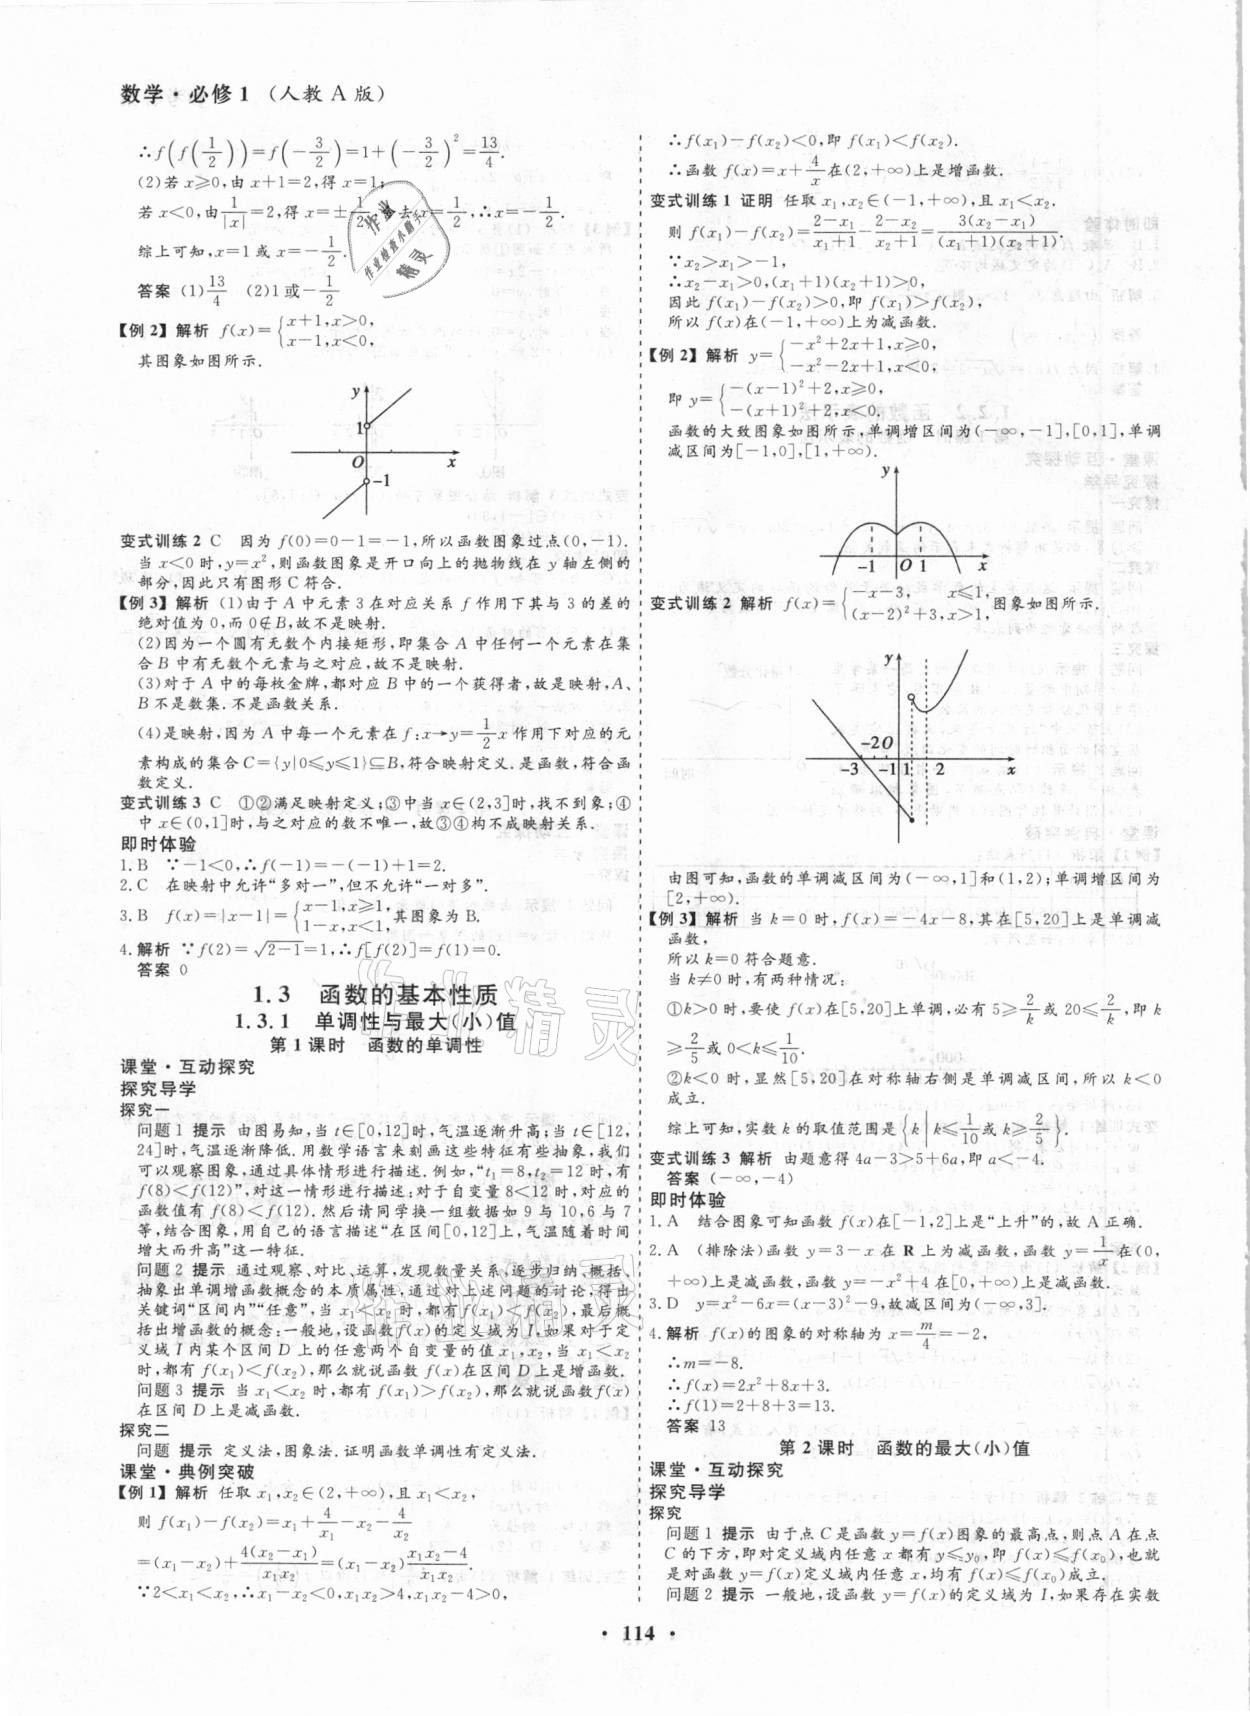 数学·必修1（人教A版）
∴f(f(1/2))=f(-3/2)=1+(-3/2)²=13/4.
(2)若x≥0,由x+1=2,得x=1;
若x<0,由1/|x|=2,得x=±1/2,舍去x=1/2,∴x=-1/2.
综上可知,x=1或x=-1/2.
答案 (1)13/4 (2)1或-1/2
【例2】解析 f(x)={x+1,x>0,
x-1,x<0,
其图象如图所示.
y
1
O x
-1
变式训练2 C 因为f(0)=0-1=-1,所以函数图象过点(0,-1).
当x<0时,y=x²,则函数图象是开口向上的抛物线在y轴左侧的
部分,因此只有图形C符合.
【例3】解析 (1)由于A中元素3在对应关系f作用下其与3的差的
绝对值为0,而0∉B,故不是映射.
(2)因为一个圆有无数个内接矩形,即集合A中任何一个元素在集
合B中有无数个元素与之对应,故不是映射.
(3)对于A中的每枚金牌,都对应B中的一个获得者,故是映射,A、
B不是数集.不是函数关系.
(4)是映射,因为A中每一个元素在f:x→y=1/2x作用下对应的元
素构成的集合C={y|0≤y≤1}⊆B,符合映射定义.是函数,符合函
数定义.
变式训练3 C ①②满足映射定义;③中当x∈(2,3]时,找不到象;④
中x∈(0,1]时,与之对应的数不唯一,故③④构不成映射关系.
即时体验
1.B ∵-1<0,∴f(-1)=-(-1)+1=2.
2.C 在映射中允许“多对一”,但不允许“一对多”.
3.B f(x)=|x-1|={x-1,x≥1,
1-x,x<1,其图象为B.
4.解析 ∵f(2)=√2-1=1,∴f[f(2)]=f(1)=0.
答案 0
1.3 函数的基本性质
1.3.1 单调性与最大(小)值
第1课时 函数的单调性
课堂·互动探究
探究导学
探究一
问题1 提示 由图易知,当t∈[0,12]时,气温逐渐升高;当t∈[12,
24]时,气温逐渐降低.用数学语言来刻画这些特征有些抽象,我们
可以观察图象,通过具体情形进行描述.例如,“t₁=8,t₂=12时,有
f(8)<f(12)”,对这一情形进行描述:对于自变量8<12时,对应的
函数值有f(8)<f(12).然后请同学换一组数据如9与10,6与7
等,结合图象,用自己的语言描述“在区间[0,12]上,气温随着时间
增大而升高”这一特征.
问题2 提示 通过观察、对比、运算,发现数量关系,逐步归纳、概括,
抽象出单调增函数概念的本质属性,通过对上述问题的讨论,得出
关键词“区间内”“任意”,当x₁<x₂时,都有f(x₁)<f(x₂),最后概
括出增函数的概念:一般地,设函数f(x)的定义域为I,如果对于定
义域I内某个区间D上的任意两个自变量的值x₁,x₂,当x₁<x₂
时,都有f(x₁)<f(x₂),那么就说函数f(x)在区间D上是增函数.
问题3 提示 当x₁<x₂时,都有f(x₁)>f(x₂),那么就说函数f(x)
在区间D上是减函数.
探究二
问题 提示 定义法,图象法.证明函数单调性有定义法.
课堂·典例突破
【例1】解析 任取x₁,x₂∈(2,+∞),且x₁<x₂,
则f(x₁)-f(x₂)=x₁+4/x₁-x₂-4/x₂
=(x₁-x₂)+4(x₂-x₁)/x₁x₂=(x₁-x₂)x₁x₂-4/x₁x₂.
∵2<x₁<x₂,∴x₁-x₂<0,x₁x₂>4,x₁x₂-4>0,
∴f(x₁)-f(x₂)<0,即f(x₁)<f(x₂).
∴函数f(x)=x+4/x在(2,+∞)上是增函数.
变式训练1 证明 任取x₁,x₂∈(-1,+∞),且x₁<x₂.
则f(x₁)-f(x₂)=2-x₁/x₁+1-2-x₂/x₂+1=3(x₂-x₁)/(x₁+1)(x₂+1).
∵x₂>x₁>-1,
∴x₂-x₁>0,(x₁+1)(x₂+1)>0,
因此f(x₁)-f(x₂)>0,即f(x₁)>f(x₂),
所以f(x)在(-1,+∞)上为减函数.
【例2】解析 y={-x²+2x+1,x≥0,
-x²-2x+1,x<0,
即y={-(x-1)²+2,x≥0,
-(x+1)²+2,x<0.
函数的大致图象如图所示,单调增区间为(-∞,-1],[0,1],单调
减区间为[-1,0],[1,+∞).
y
-1 O 1 x
变式训练2 解析 f(x)={-x-3, x≤1,
(x-2)²+3,x>1,图象如图所示.
y
-2O
-3 -1 1 2 x
由图可知,函数的单调减区间为(-∞,1]和(1,2);单调增区间为
[2,+∞).
【例3】解析 当k=0时,f(x)=-4x-8,其在[5,20]上是单调减
函数,
所以k=0符合题意.
当k≠0时,有两种情况:
①k>0时,要使f(x)在[5,20]上单调,必有5≥2/k或20≤2/k,即k
≥2/5或0<k≤1/10.
②k<0时,显然[5,20]在对称轴右侧是单调减区间,所以k<0
成立.
综上可知,实数k的取值范围是{k|k≤1/10或k≥2/5}.
变式训练3 解析 由题意得4a-3>5+6a,即a<-4.
答案 (-∞,-4)
即时体验
1.A 结合图象可知函数f(x)在[-1,2]上是“上升”的,故A正确.
2.A (排除法)函数y=3-x在R上为减函数,函数y=1/x在(0,
+∞)上是减函数,函数y=-x²+4在[0,+∞)上是减函数.
3.D y=x²-6x=(x-3)²-9,故减区间为(-∞,3].
4.解析 f(x)的图象的对称轴为x=m/4=-2,
∴m=-8.
∴f(x)=2x²+8x+3.
∴f(1)=2+8+3=13.
答案 13
第2课时 函数的最大(小)值
课堂·互动探究
探究导学
探究
问题1 提示 由于点C是函数y=f(x)图象的最高点,则点A在点
C的下方,即对定义域内任意x都有y≤y₀,即f(x)≤f(x₀),也就
是对函数y=f(x)定义域内任意x,均有f(x)≤f(x₀)成立.
问题2 提示 一般地,设函数y=f(x)的定义域为I,如果存在实数
· 114 ·
作业精灵
作业检查小帮手
作业精灵
作业精灵